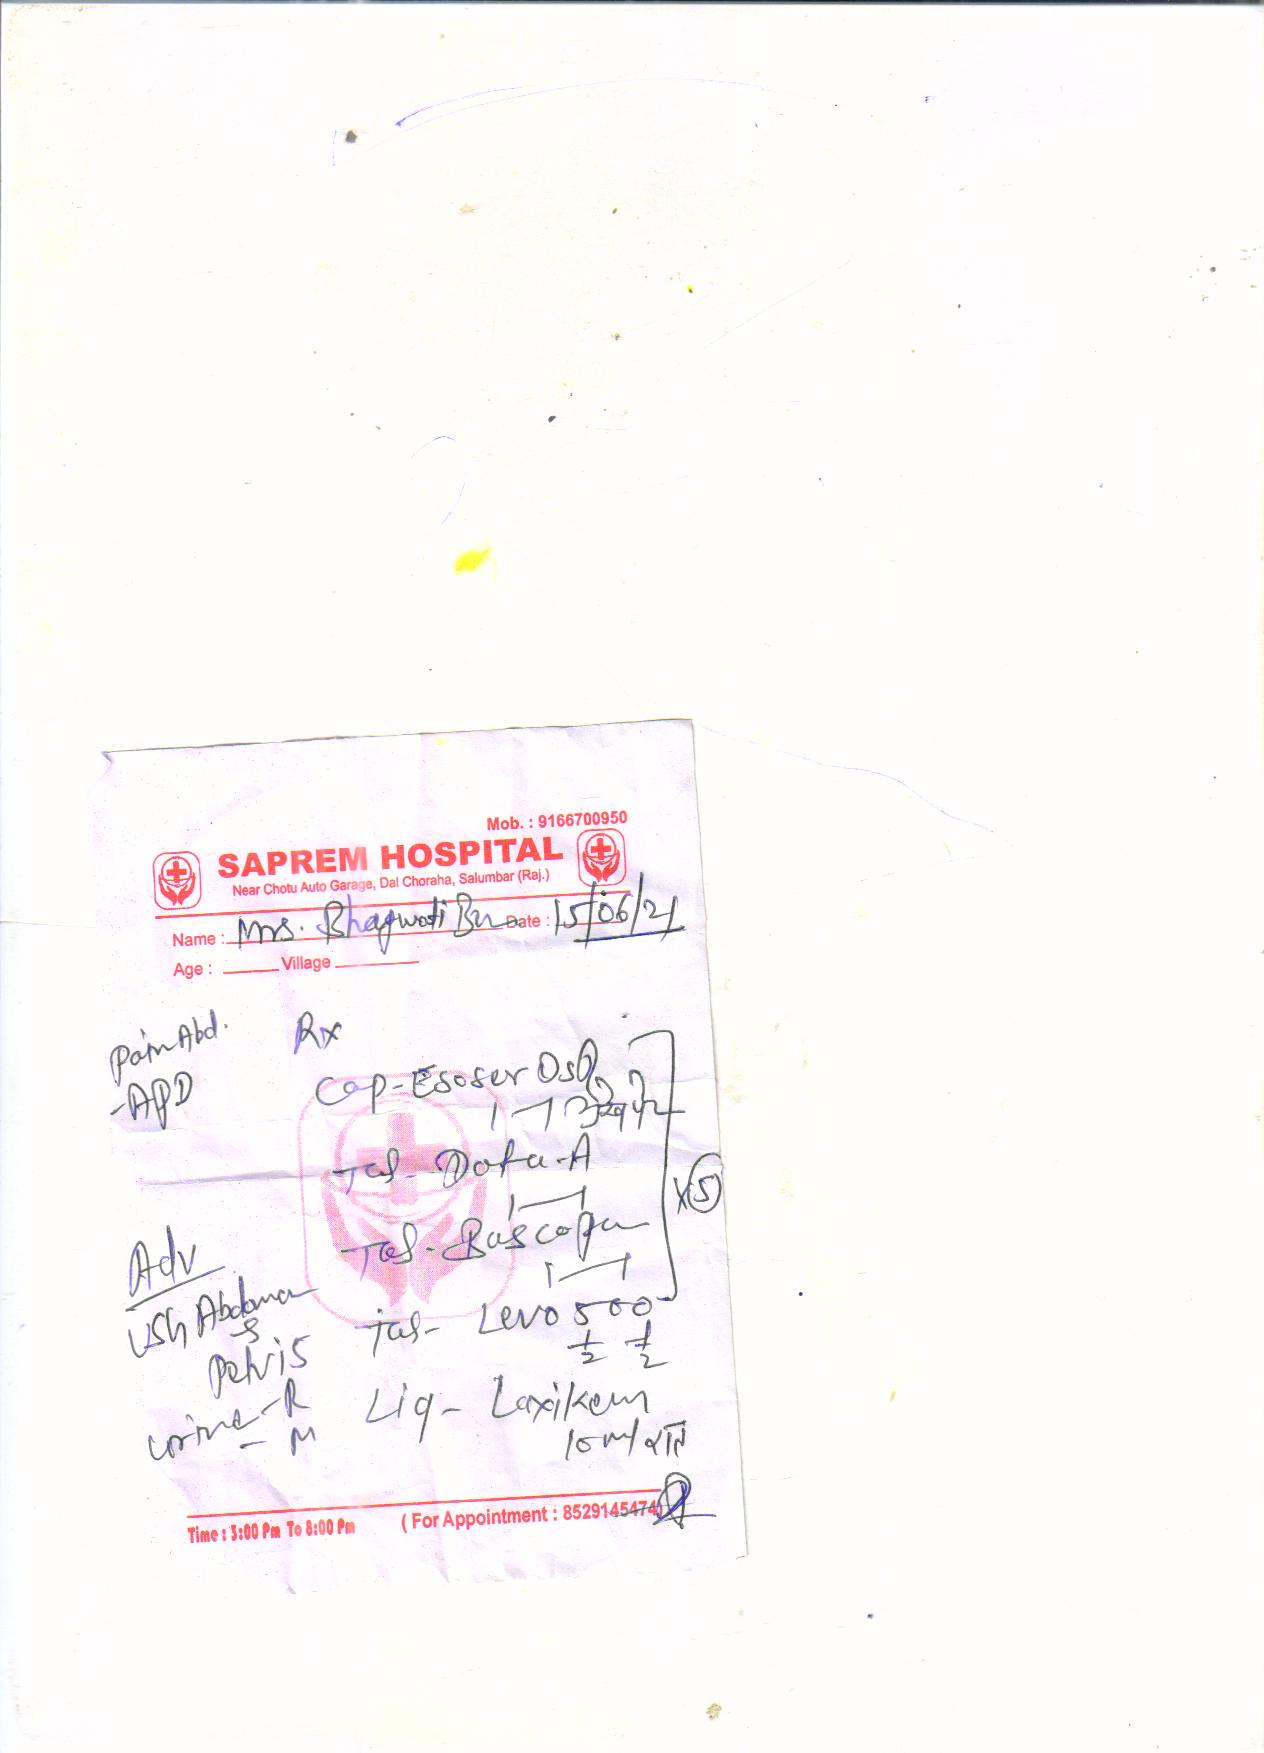 Mob. : 9166700950
SAPREM HOSPITAL
Near Chotu Auto Garage, Dal Choraha, Salumbar (Raj.)
Name : Mrs. Bhagwati Date : 15/06/21
Age : Village
Pain Abd.
-APD
Rx
Cap-Esoser
1
Tab-
Tab-Buscopan
Tab- Levo 500
1/2 1/2
x5
Liq- Laxikem
10 ml
Adv
USG Abdomen
&
Pelvis
Urine-R
- M
Time : 3:00 Pm To 8:00 Pm
( For Appointment : 8529145474)